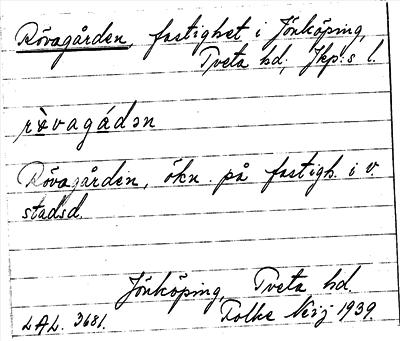 Rövagården, fastighet i Jönköping,
Tveta hd, Jkp:s l.
rövagádən
Rövagården, ökn. på fastigh. i v.
stadsd.
Jönköping, Tveta hd.
LAL. 3681. Folke Neij 1939.